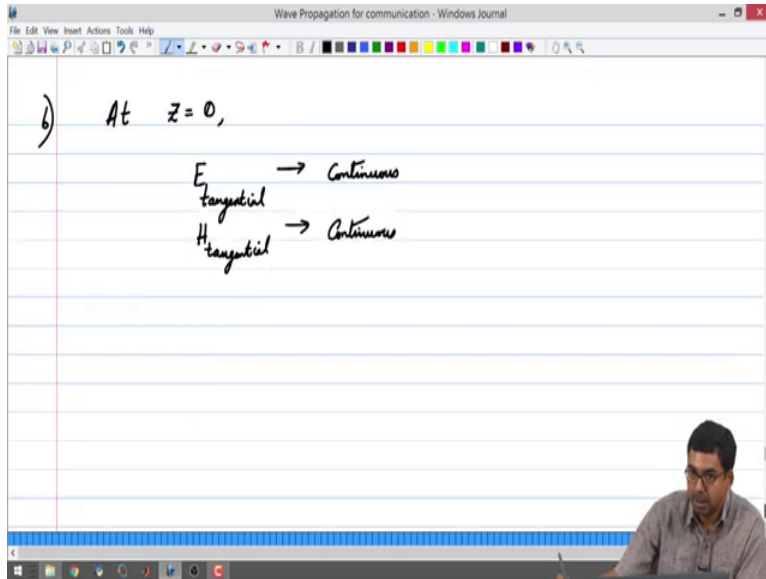 Wave Propagation for communication - Windows Journal
File Edit View Insert Actions Tools Help
B I
6) At Z = 0,
E tangential → Continuous
H tangential → Continuous